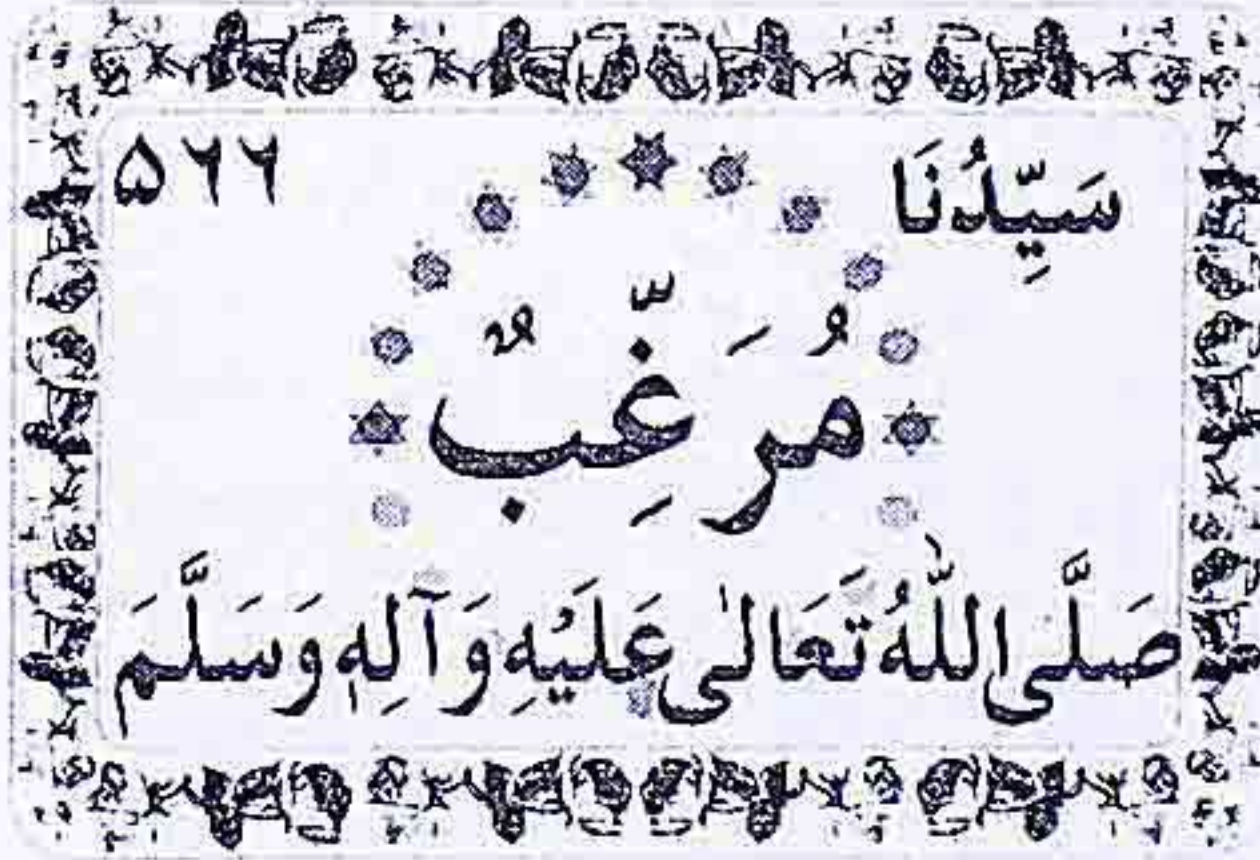 سَيِّدُنَا ۵٦٦
مُرَغِّبٌ
صَلَّى اللّٰهُ تَعَالٰى عَلَيْهِ وَآلِهٖ وَسَلَّمَ